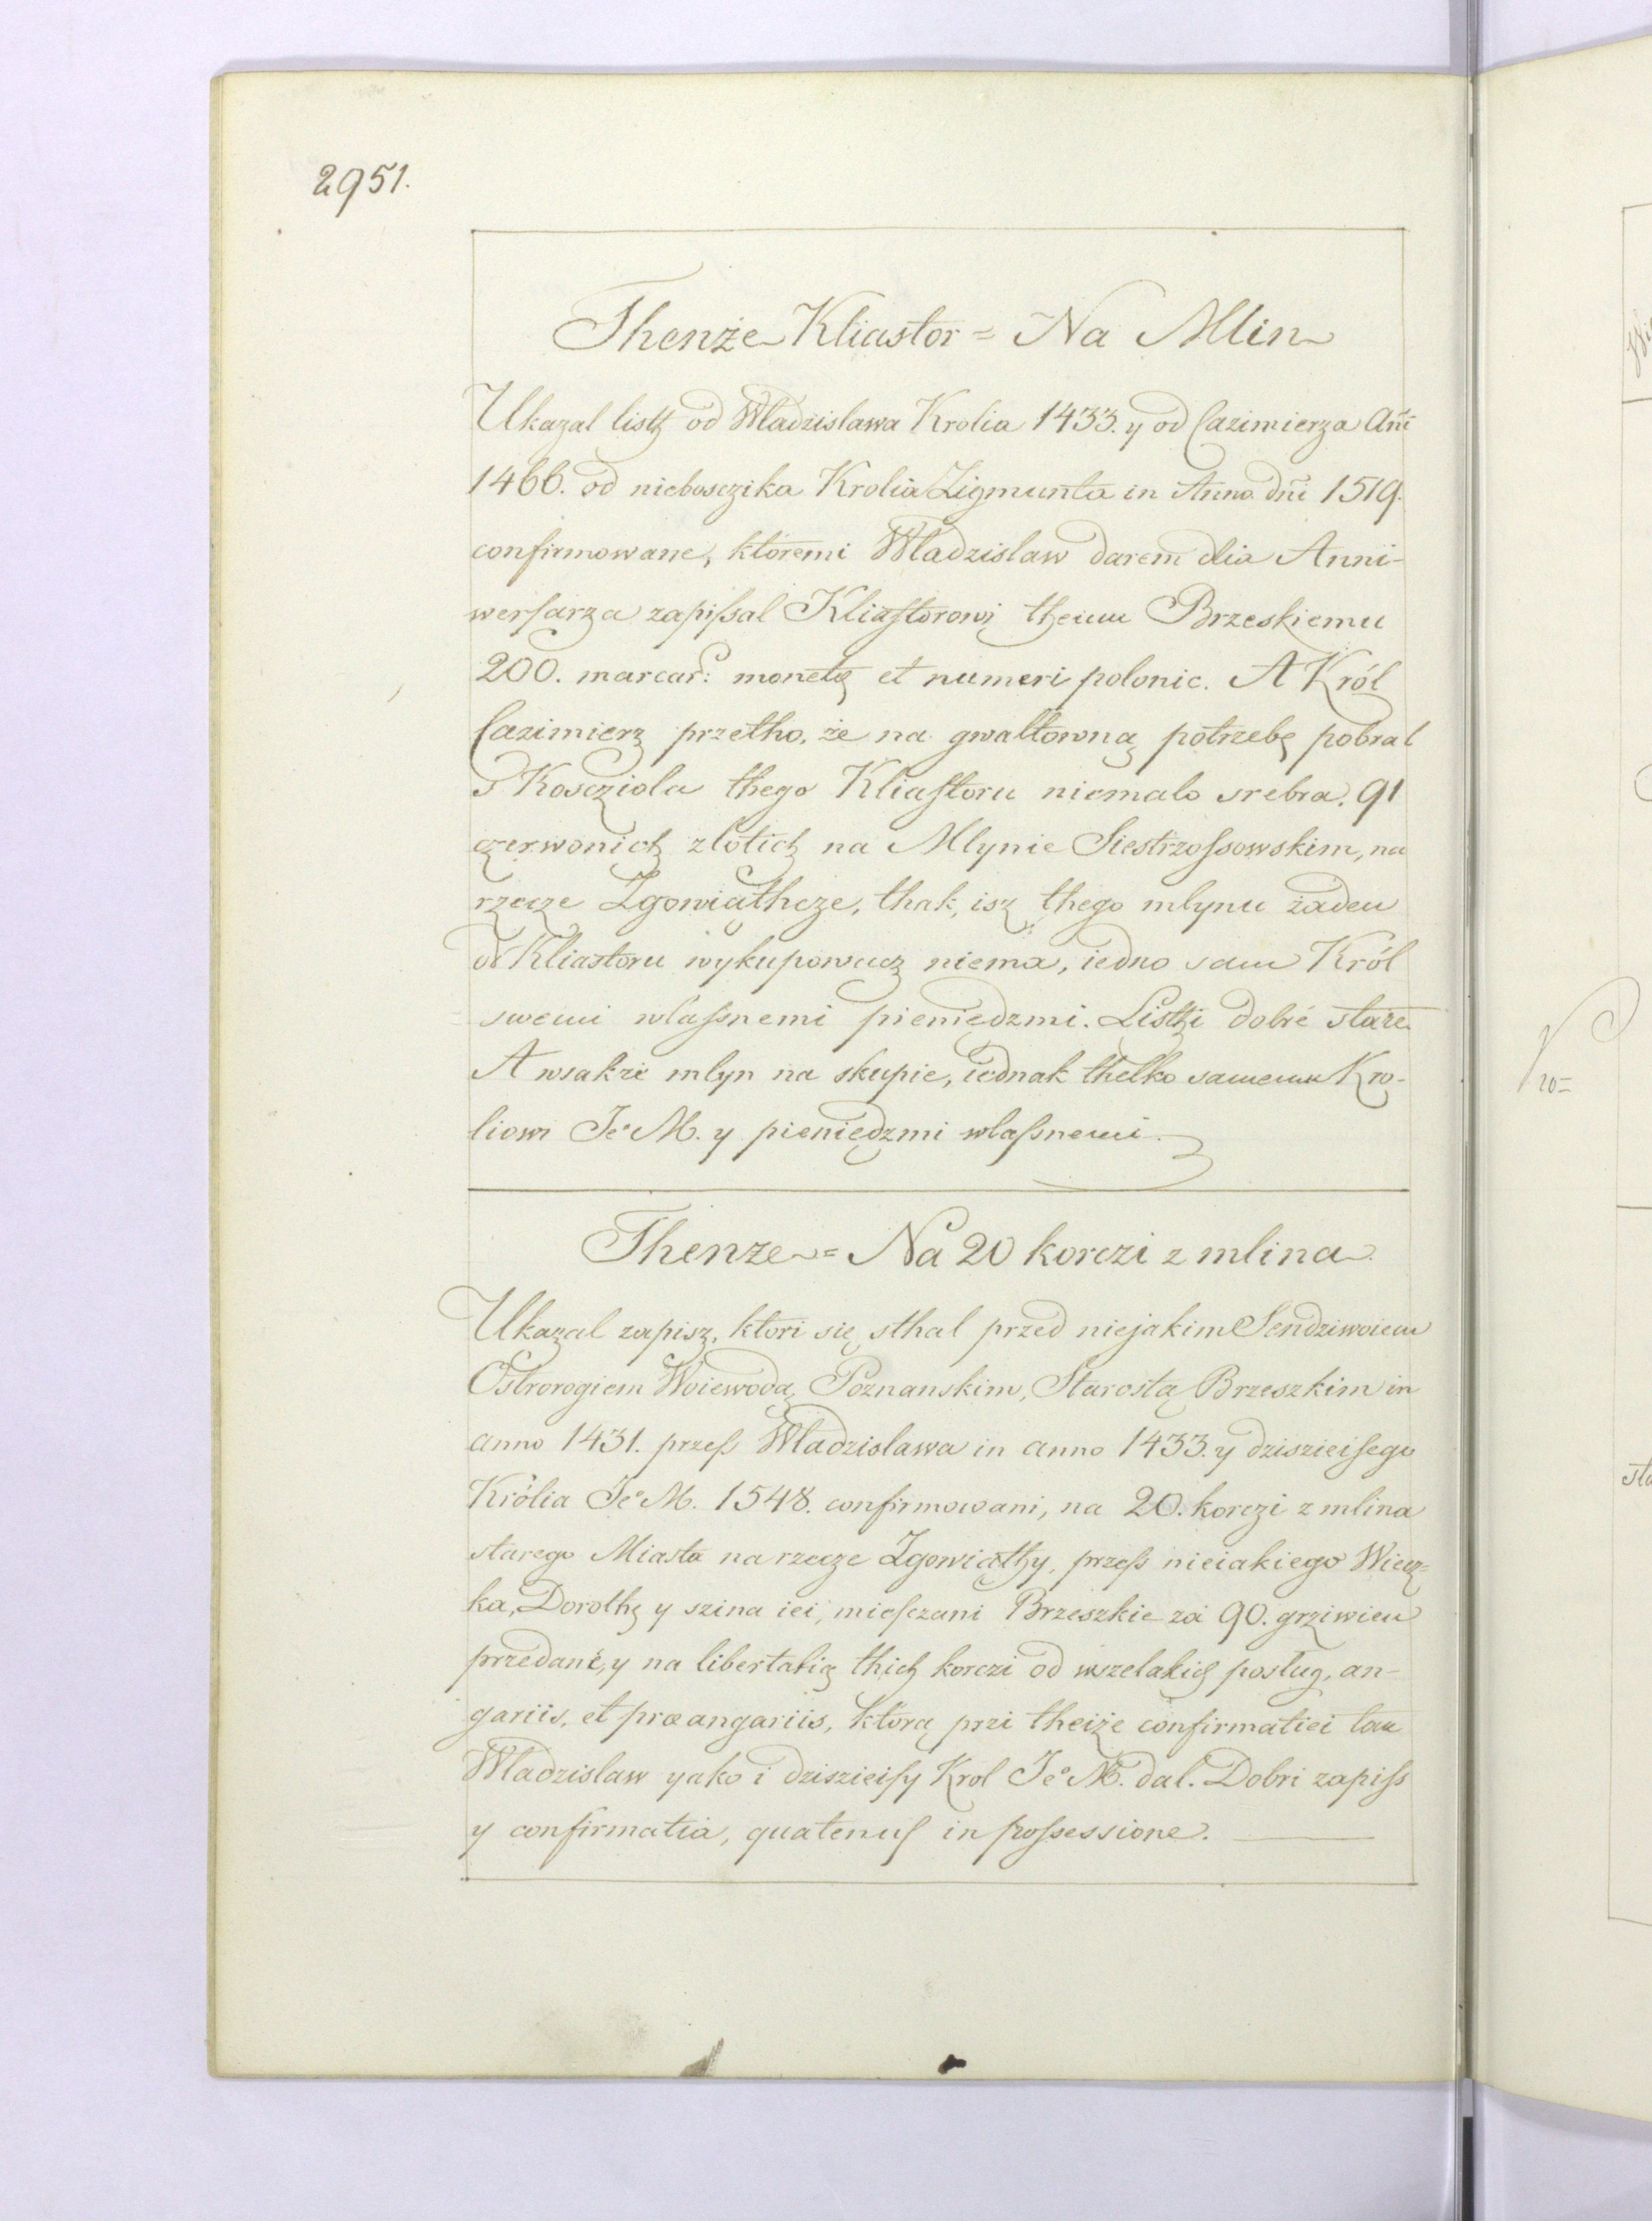 2951.
Thenże Kliastor = Na Mlin
Ukazal listy od Wladzislawa Krolia 1433. y od Cazimierza Ani
1466. od nieboszczika Krolia Zigmunta in Anno dni 1519.
confirmowane, ktoremi Wladzislaw darem dlia Anni-
werſarza zapiſsal Kliaſtorowi themu Brzeskiemu
200. marcar: monetę et numeri polonic. A Król
Cazimierz przetho, że na gwaltowną potrzebę pobral
s Kosczióla thego Kliaſtoru niemalo srebra, 91
czerwonich zlotich na Mlynie Siestrzoſsowskim, na
rzecze Zgowiąthcze, thak, isz thego mlynu żaden
v Kliastoru wykupowacz niema, iedno sam Król
swemi wlaſsnemi pieniędzmi. Listhi dobré stare.
A wsakże mlyn na skupie, iednak thelko samemu Kro-
liowi Je° M. y pieniędzmi wlaſsnemi.
Thenze = Na 20 korczi z mlina.
Ukazal zapisz, ktori się sthal przed niejakim Sendziwoiem
Ostrorogiem Woiewodą Poznanskim, Starostą Brzeszkim in
anno 1431. przeſs Wladzislawa in anno 1433. y dziszieiſego
Królia Je° M. 1548. confirmowani, na 20. korczi z mlina
starego Miasta na rzecze Zgowiąthy, przeſs nieiakiego Wiecz=
ka, Dorothę y szina iei, mieſczani Brzeszkie za 90. grziwien
przedané, y na libertatią thich korczi od wszelakich poslug, an-
gariis, et praeangariis, ktorą przi theiże confirmatiei tan
Wladzislaw yako i dziszieiſy Krol Je° M. dal. Dobri zapiſs
y confirmatia, quatenuſ in poſsessione.